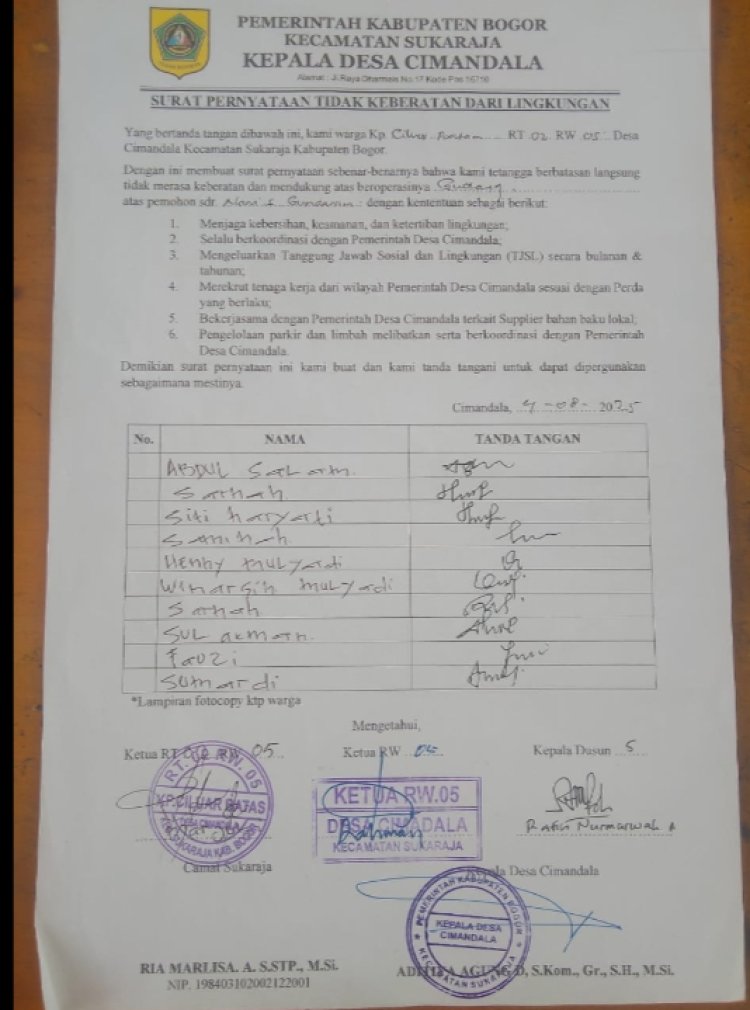 PEMERINTAH KABUPATEN BOGOR
KECAMATAN SUKARAJA
KEPALA DESA CIMANDALA
Alamat : Jl.Raya Dharmais No.17 Kode Pos 16710
SURAT PERNYATAAN TIDAK KEBERATAN DARI LINGKUNGAN
Yang bertanda tangan dibawah ini, kami warga Kp. Ciluar RT 02 RW 05 Desa
Cimandala Kecamatan Sukaraja Kabupaten Bogor.
Dengan ini membuat surat pernyataan sebenar-benarnya bahwa kami tetangga berbatasan langsung
tidak merasa keberatan dan mendukung atas beroperasinya Gudang
atas pemohon sdr. Gunawan : dengan kententuan sebagai berikut:
1. Menjaga kebersihan, keamanan, dan ketertiban lingkungan;
2. Selalu berkoordinasi dengan Pemerintah Desa Cimandala;
3. Mengeluarkan Tanggung Jawab Sosial dan Lingkungan (TJSL) secara bulanan &
tahunan;
4. Merekrut tenaga kerja dari wilayah Pemerintah Desa Cimandala sesuai dengan Perda
yang berlaku;
5. Bekerjasama dengan Pemerintah Desa Cimandala terkait Supplier bahan baku lokal;
6. Pengelolaan parkir dan limbah melibatkan serta berkoordinasi dengan Pemerintah
Desa Cimandala.
Demikian surat pernyataan ini kami buat dan kami tanda tangani untuk dapat dipergunakan
sebagaimana mestinya.
Cimandala, 4 - 08 - 2025
No. NAMA TANDA TANGAN
ABDUL SALAM.
Sarnah
Siti haryati
Saminah.
Henny mulyadi
Winarsih mulyadi
Sarnah
SUL
Fauzi
Sumardi
*Lampiran fotocopy ktp warga
Mengetahui,
Ketua RT 02 RW 05
Ketua RW 05
Kepala Dusun 5
RT.02 RW.05
KP.CILUAR BATAS
DESA CIMANDALA
KEC.SUKARAJA KAB. BOGOR
KETUA RW.05
DESA CIMADALA
KECAMATAN SUKARAJA
Rahman
Ratih Nurmarwah A
Camat Sukaraja
Kepala Desa Cimandala
PEMERINTAH KABUPATEN BOGOR
KEPALA DESA
CIMANDALA
KECAMATAN SUKARAJA
RIA MARLISA. A. S.STP., M.Si.
NIP. 198403102002122001
ADITIYA AGUNG D, S.Kom., Gr., S.H., M.Si.